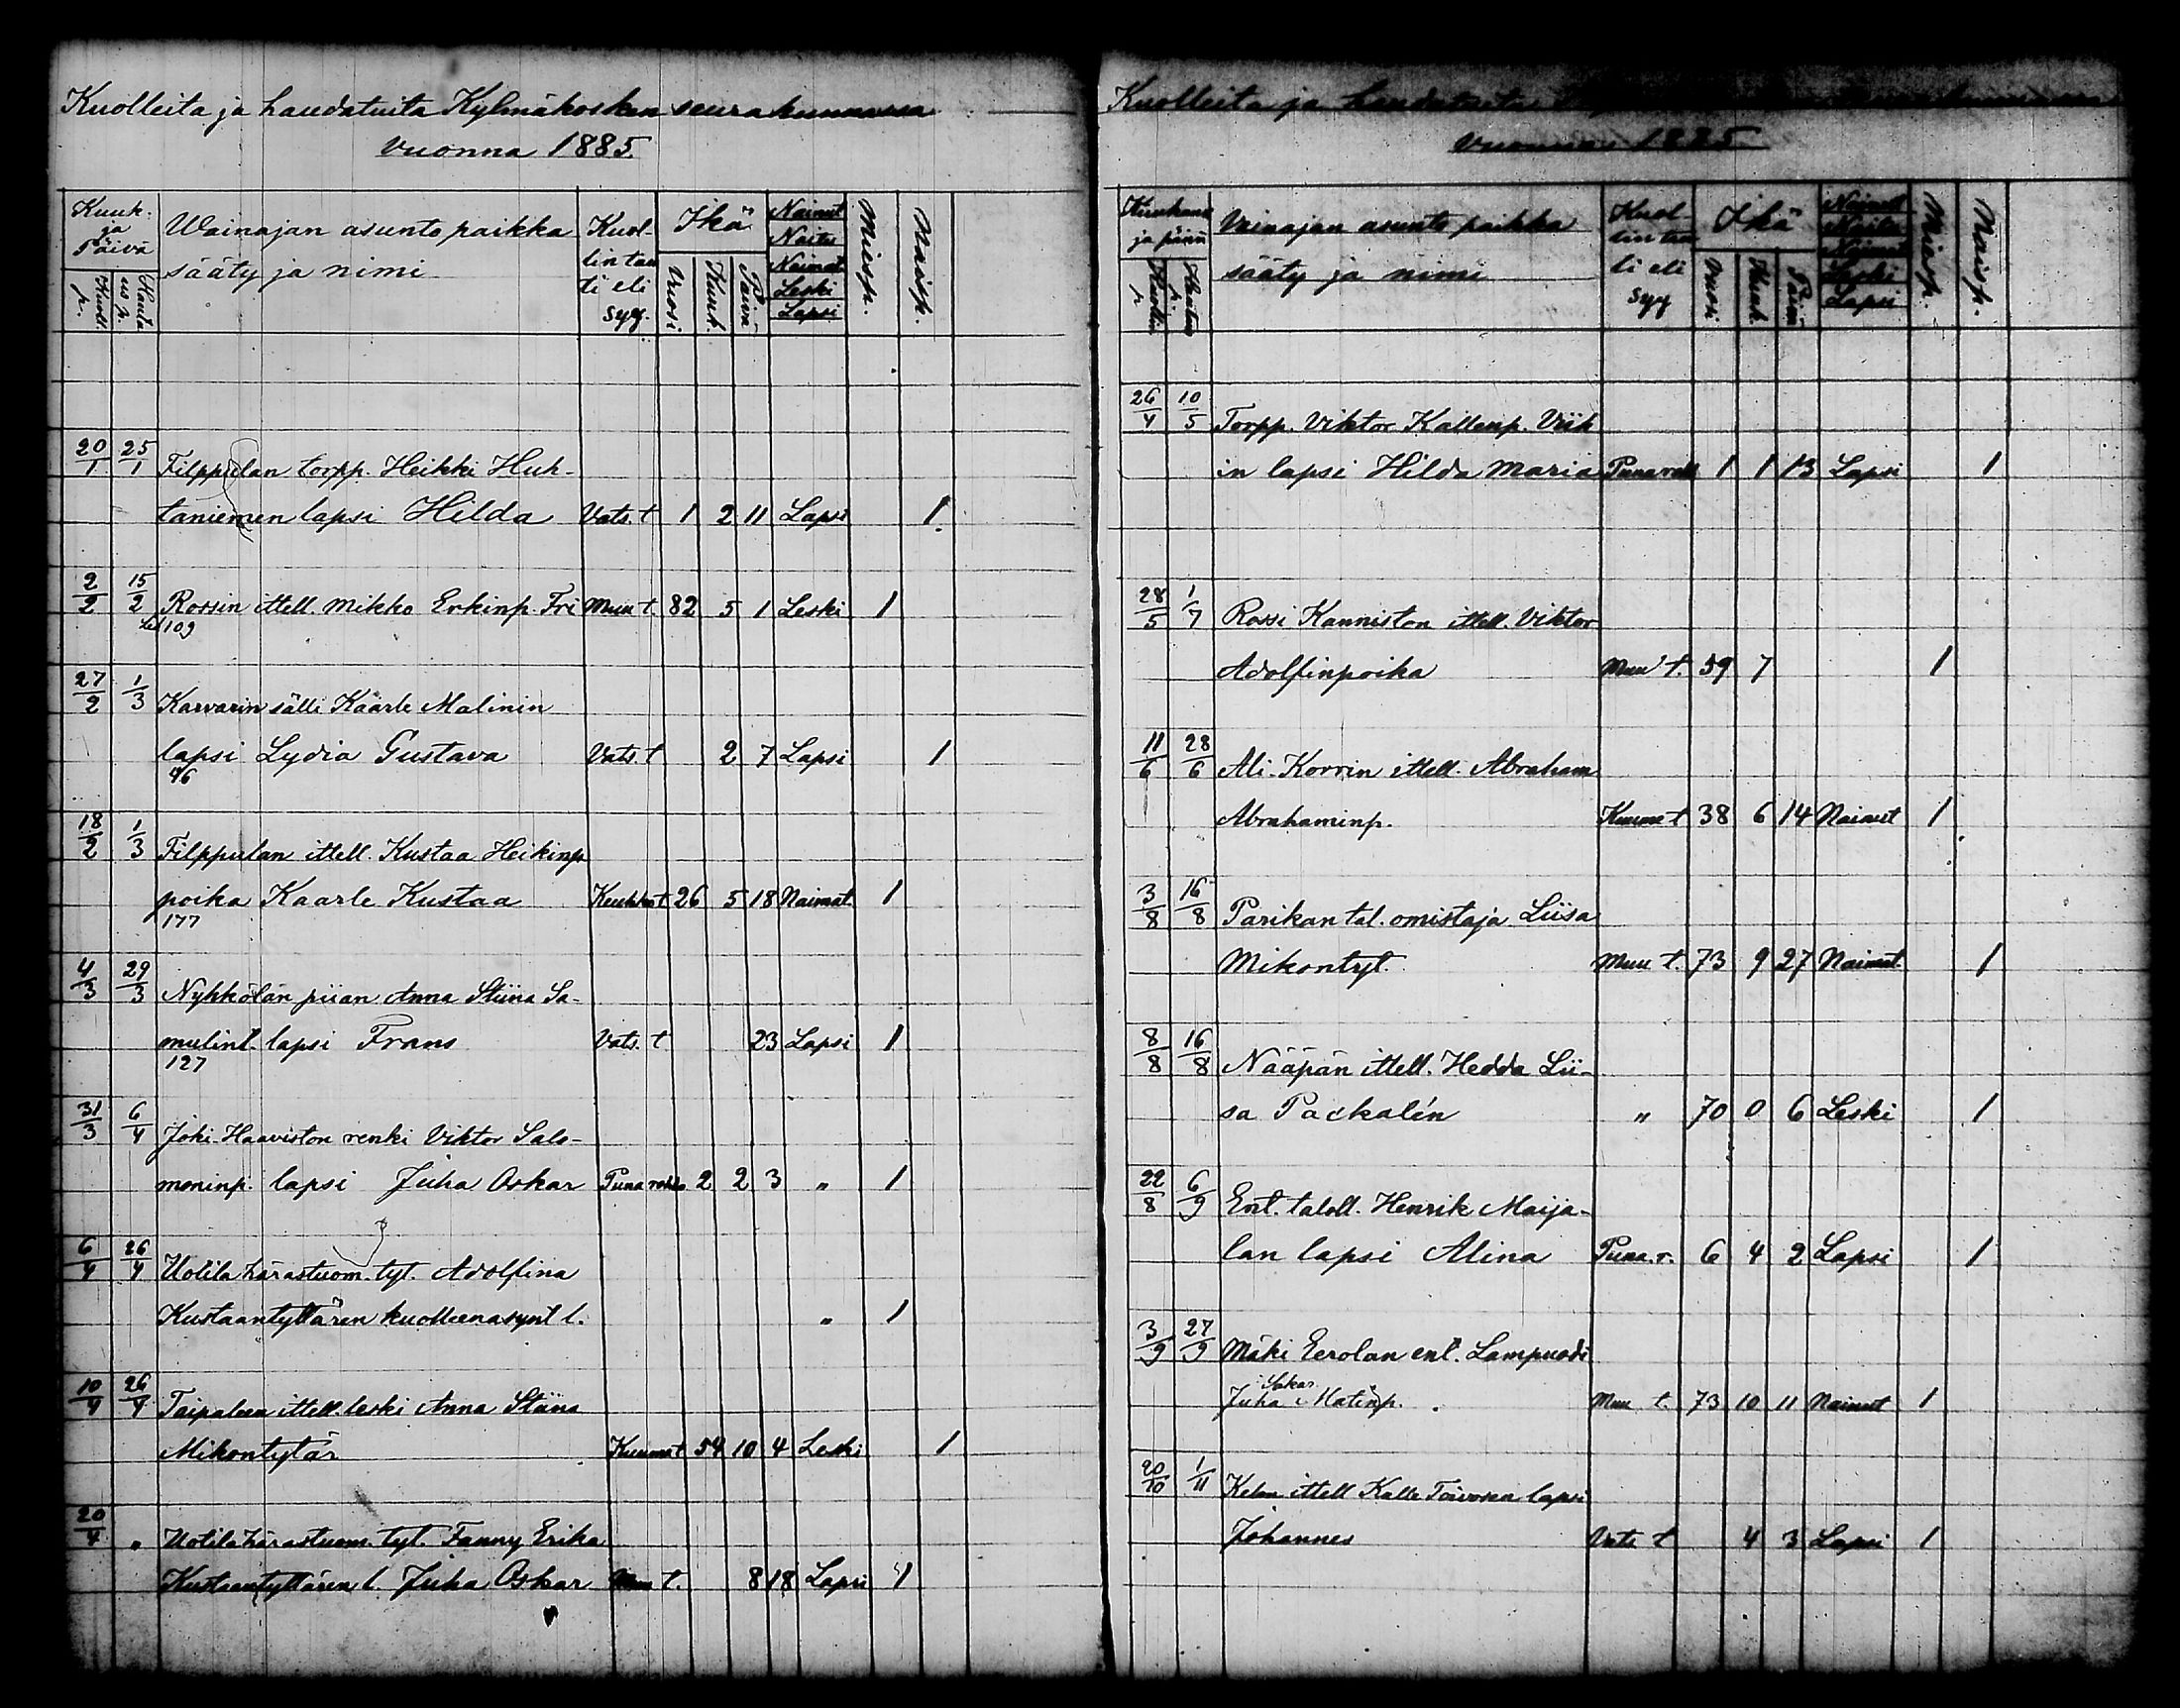 Kuolleita ja haudatuita Kylmäkosken seurakunnassa
vuonna 1885.
Kuuk. ja Päivä
Kuol. p.
Hautaus p.
Wainajan asunto paikka
sääty ja nimi
Kuol-
lintau
ti eli
syy.
Ikä
Vuosi
Kuuk.
Päivä
Nainut
Naitu
Naimat.
Leski
Lapsi
Miesp.
Naisp.
20/1 25/1 Filppulan torpp. Heikki Huh-
taniemen lapsi Hilda Vats. t 1 2 11 Lapsi 1
2/2 15/2 Rossin ittell. Mikko Erkinp. Fri Muu t. 82 5 1 Leski 1
109
27/2 1/3 Karvarin sälli Kaarle Malinin
lapsi Lydia Gustava Vats. t 2 7 Lapsi 1
46
18/2 1/3 Filppulan ittell. Kustaa Heikinp
poika Kaarle Kustaa Keuhkot 26 5 18 Naimat. 1
177
4/3 29/3 Nyhkölän piian Anna Stiina Sa-
mulint. lapsi Frans Vats. t 23 Lapsi 1
127
31/3 6/4 Joki-Haaviston renki Viktor Salo-
moninp. lapsi Juha Oskar Punarokko 2 2 3 " 1
6/4 26/4 Uotila härastuom. tyt. Adolfina
Kustaantyttären kuolleenasynt l. " 1
10/4 26/4 Taipaleen ittell. leski Anna Stiina
Mikontytär Kuumat 54 10 4 Leski 1
20/4 " Uotila härastuom. tyt. Fanny Erika
Kustaantyttären l. Juha Oskar Muu t. 8 18 Lapsi 1
Kuolleita ja haudatuita
vuonna 1885
Kuukausi
ja päivä
Kuollin p
Hautaus p.
Vainajan asunto paikka
sääty ja nimi
Kuol-
lin tau
ti eli
syy
Ikä
Vuosi
Kuuk.
Päivä
Nainut
Naitu
Naimat
Leski
Lapsi
Miesp.
Naisp.
26/4 10/5 Torpp. Viktor Kallenp. Viik
in lapsi Hilda Maria Punarok 1 1 13 Lapsi 1
28/5 1/7 Rossi Kanniston ittell. Viktor
Adolfinpoika Muu t. 59 7 1
11/6 28/6 Ali-Korrin ittell. Abraham
Abrahaminp. Kuumet 38 6 14 Nainut 1
3/8 16/8 Parikan tal. omistaja Liisa
Mikontyt. Muu t. 73 9 27 Naimat. 1
8/8 16/8 Nääpän ittell. Hedda Lii-
sa Packalén " 70 0 6 Leski 1
22/8 6/9 Ent. taloll. Henrik Maija-
lan lapsi Alina Puna.r. 6 4 2 Lapsi 1
3/9 27/9 Mäki Eerolan ent. Lampuodi
Juha Matinp. Muu t. 73 10 11 Nainut 1
20/10 1/11 Kelan ittell Kalle Toivosen lapsi
Johannes Vats t 4 3 Lapsi 1